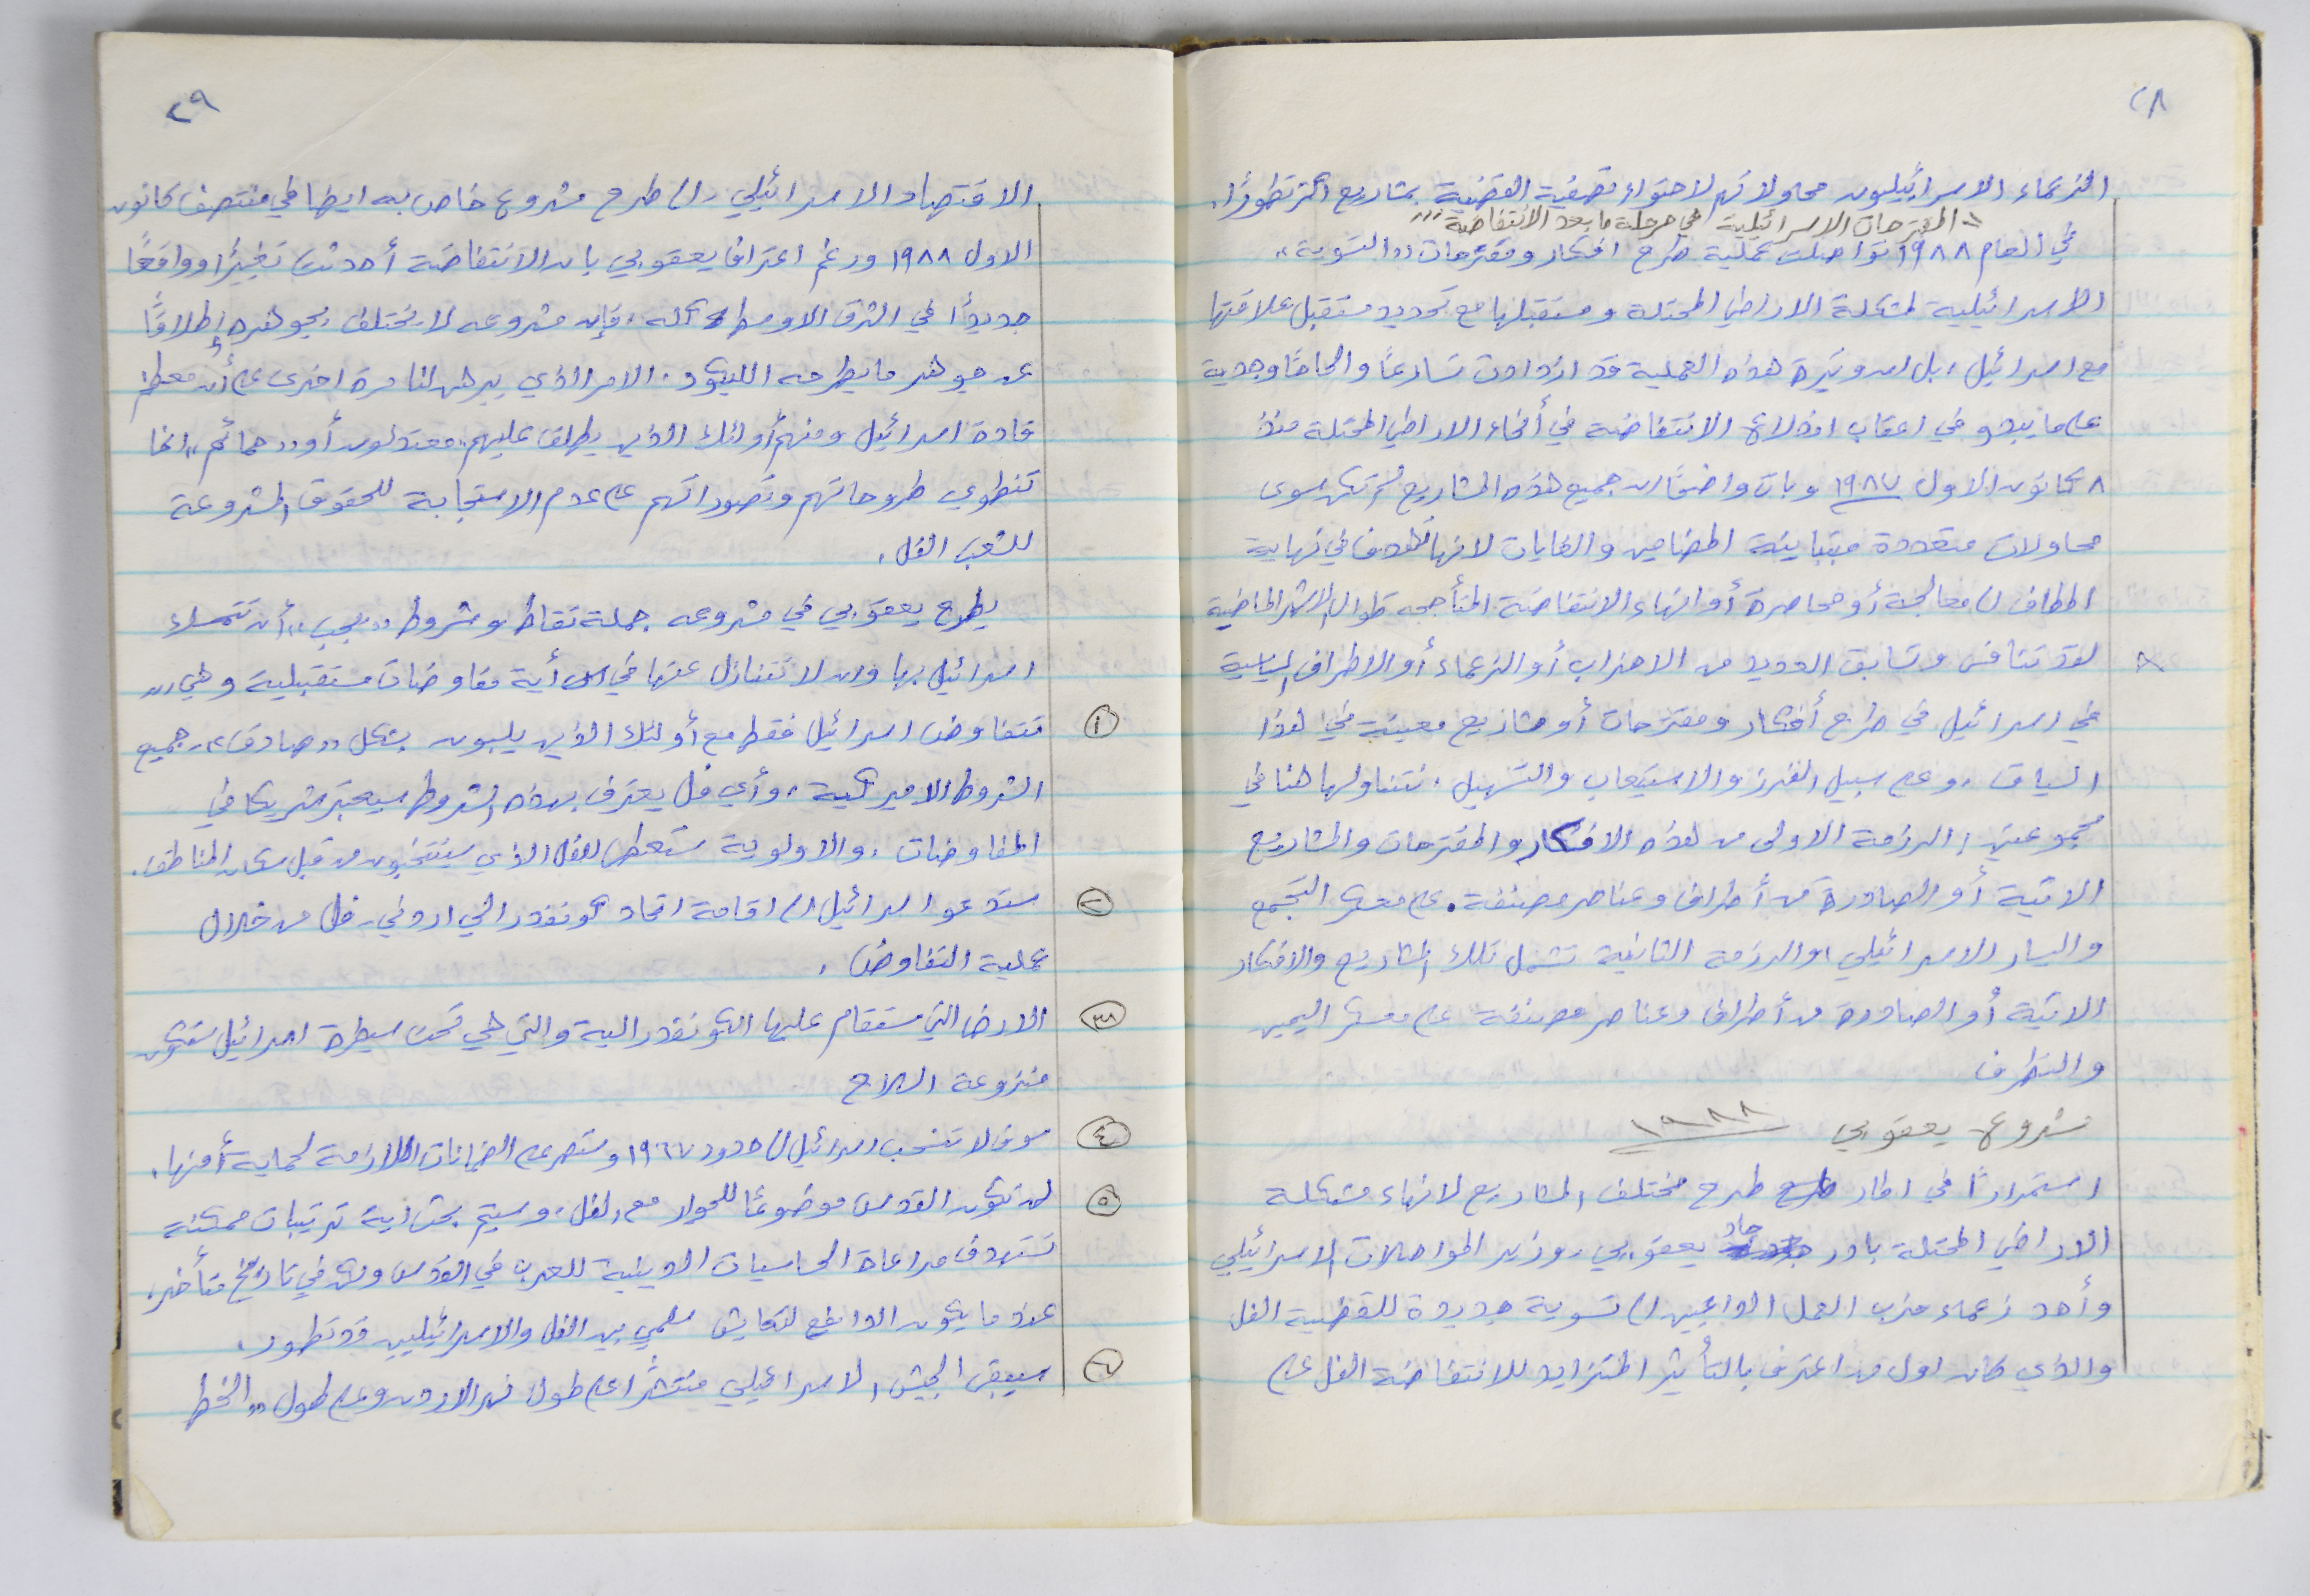 ٢٨
الزعماء الاسرائيليون محاولاتهم لاحتواء وتصفية القضية بمشاريع اكثر تطورًا.
المقترحات الاسرائيلية في مرحلة ما بعد الانتفاضة
في العام ١٩٨٨ تواصلت عملية طرح افكار ومقترحات "التسوية"
الاسرائيلية لمشكلة الاراضي المحتلة ومستقبلها مع تحديد مستقبل علاقتها
مع اسرائيل، بل ان وتيرة هذه العملية قد ازدادت تسارعًا والحاحًا وجدية
على ما يبدو في اعقاب اندلاع الانتفاضة في أنحاء الاراضي المحتلة منذ
٨ كانون الاول ١٩٨٧ وبات واضحًا ان جميع هذه المشاريع لم تكن سوى
محاولات متعددة متباينة المضامين والغايات لانها تهدف في نهاية
المطاف الى معالجة أو محاصرة أو انهاء الانتفاضة المتأججه طوال الاشهر الماضية
لقد تنافس وتسابق العديد من الاحزاب أو الزعماء أو الاطراف السياسية
في اسرائيل في طرح أفكار ومقترحات أو مشاريع معينة في هذا
السياق، وعلى سبيل الفرز والاستيعاب والتسهيل، نتناولها هنا في
مجموعتين: الرزمة الاولى من هذه الافكار والمقترحات والمشاريع
الاتية أو الصادرة من أطراف وعناصر مصنفة. على معسكر التجمع
واليسار الاسرائيلي، والرزمة الثانية تشمل تلك المشاريع والافكار
الاتية أو الصادرة من أطراف وعناصر مصنفة على معسكر اليمين
والتطرف
مشروع يعقوبي ١٩٨٨
استمرارًا في اطار طرح مختلف المشاريع لانهاء مشكلة
الاراضي المحتلة بادر جاد يعقوبي، وزير المواصلات الاسرائيلي
وأحد زعماء حزب العمل الداعيين الى تسوية جديدة للقضية الفل
والذي كان اول من اعترف بالتأثير المتزايد للانتفاضة الفل على
٢٩
الاقتصاد الاسرائيلي، الى طرح مشروع خاص به ايضا في منتصف كانون
الاول ١٩٨٨ ورغم اعتراف يعقوبي بان الانتفاضة أحدثت تغييرًا وواقعًا
جديدًا في الشرق الاوسط كله، فإن مشروعه لا يختلف بجوهره إطلاقًا
عن جوهر ما يطرحه الليكود. الامر الذي يبرهن لنا مرة اخرى على أن معظم
قادة اسرائيل ومنهم أولئك الذين يطلق عليهم "معتدلون أو "حمائم" انما
تنطوي طروحاتهم وتصوراتهم على عدم الاستجابة للحقوق المشروعة
للشعب الفل.
يطرح يعقوبي في مشروعه جملة نقاط وشروط "يجب" أن تتمسك
اسرائيل بها وان لا تتنازل عنها في أية مفاوضات مستقبلية وهي
١ تتفاوض اسرائيل فقط مع أولئك الذين يلبون بشكل "صادق" جميع
الشروط الاميركية، وأي فل يعترف بهذه الشروط سيعتبر شريكا في
المفاوضات، والاولوية ستعطى للفل الذي سينتخبون من قبل سكان المناطق.
٢ ستدعو اسرائيل الى اقامة اتحاد كونفدرالي اردني - فل من خلال
عملية التفاوض.
٣ الارض التي ستقام عليها الكونفدرالية والتي هي تحت سيطرة اسرائيل ستكون
منزوعة السلاح
٤ سوف لا تنسحب اسرائيل الى حدود ١٩٦٧ وستصر على الضمانات اللازمة لحماية أمنها.
٥ لن تكون القدس موضوعًا للحوار مع الفل، وسيتم بحث اية ترتيبات ممكنة
تستهدف مراعاة الحاسيات الدينية للعرب في القدس ولكن في تاريخ متأخر،
عندما يكون الدافع لتعايش سلمي بين الفل والاسرائيليين قد تطور.
٦ سيبقى الجيش الاسرائيلي منتشرًا على طول نهر الاردن وعلى طول "الخط